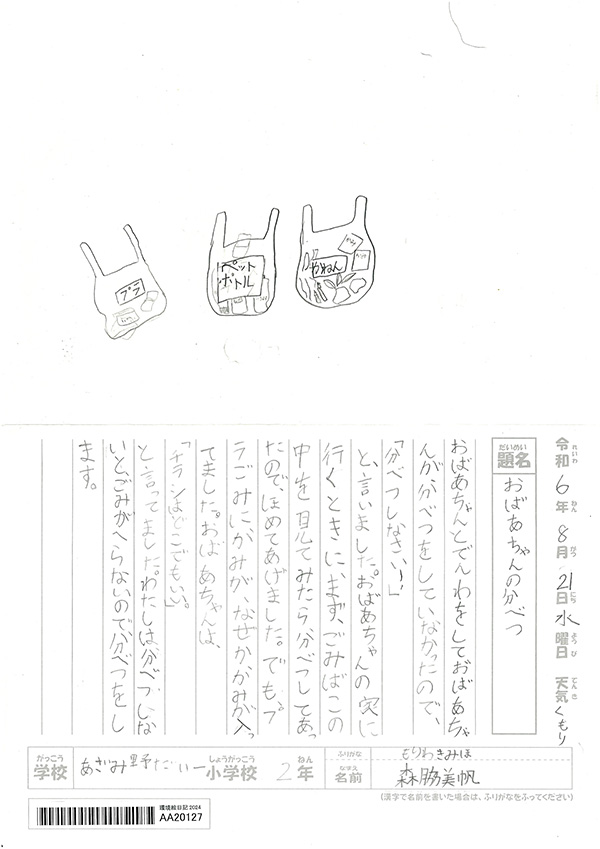 プラ
ペット
ボトル
かねん
令和6年8月21日水曜日 天気くもり
れいわ ねん がつ にち ようび てんき
だいめい
題名
おばあちゃんの分べつ
おばあちゃんとでんわをしておばあちゃ
んが分べつをしていなかったので、
「分べつしなさい!」
と、言いました。おばあちゃんの家に
行くときに、まず、ごみばこの
中を見てみたら分べつしてあっ
たので、ほめてあげました。でも、プ
ラごみにかみが、なぜか、かみが入っ
てました。おばあちゃんは、
「チラシはどこでもいい。」
と言ってました。わたしは分べつしな
いと、ごみがへらないので分べつをし
ます。
がっこう
学校
あざみ野だい一
しょうがっこう
小学校
2
ねん
年
ふりがな
もりわきみほ
なまえ
名前
森脇美帆
(漢字で名前を書いた場合は、ふりがなをふってください)
環境絵日記2024
AA20127